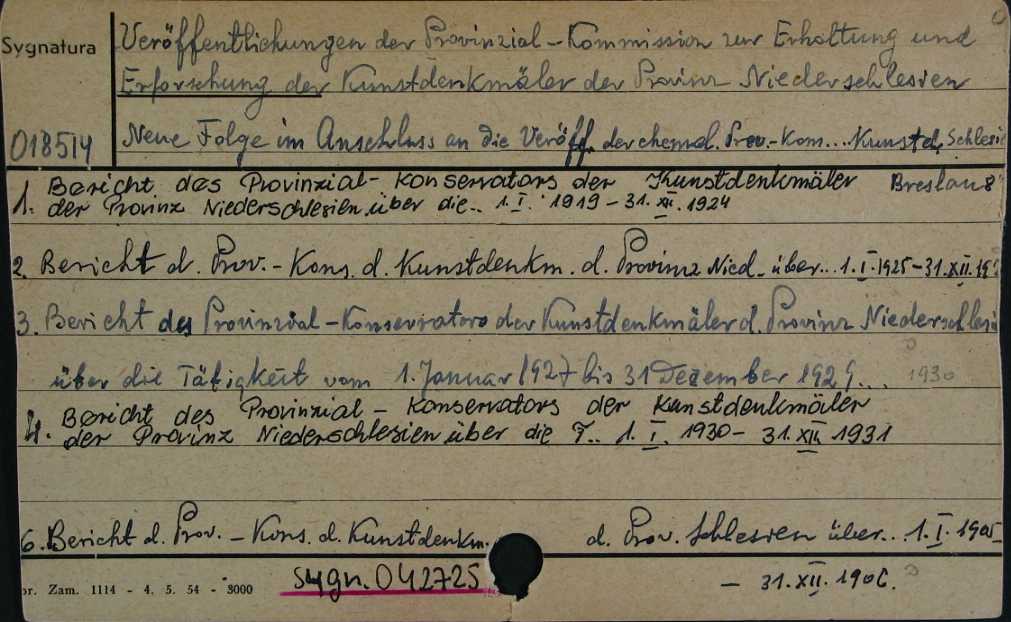 Sygnatura
018514
Veröffentlichungen der Provinzial-Kommission zur Erhaltung und
Erforschung der Kunstdenkmäler der Provinz Niederschlesien
Neue Folge im Anschluss an die Veröff. der ehemal. Prov.-Kom... Kunstd. Schlesi
1. Bericht des Provinzial-Konservators der Kunstdenkmäler Breslau 8°
der Provinz Niederschlesien über die.. 1.I. 1919-31.XII.1924
2. Bericht d. Prov.-Kons. d. Kunstdenkm. d. Provinz Nied. über... 1.I.1925-31.XII.19
3. Bericht des Provinzial-Konservators der Kunstdenkmäler d. Provinz Niederschlesi
über die Tätigkeit vom 1. Januar 1927 bis 31 Dezember 1929... 1930
4. Bericht des Provinzial-Konservators der Kunstdenkmäler
der Provinz Niederschlesien über die T.. 1.I. 1930-31.XII 1931
6. Bericht d. Prov.-Kons. d. Kunstdenkm. d. Prov. Schlesien über.. 1.I.1905
- 31.XII.1906.
sygn. 042725
or. Zam. 1114 - 4. 5. 54 - 3000